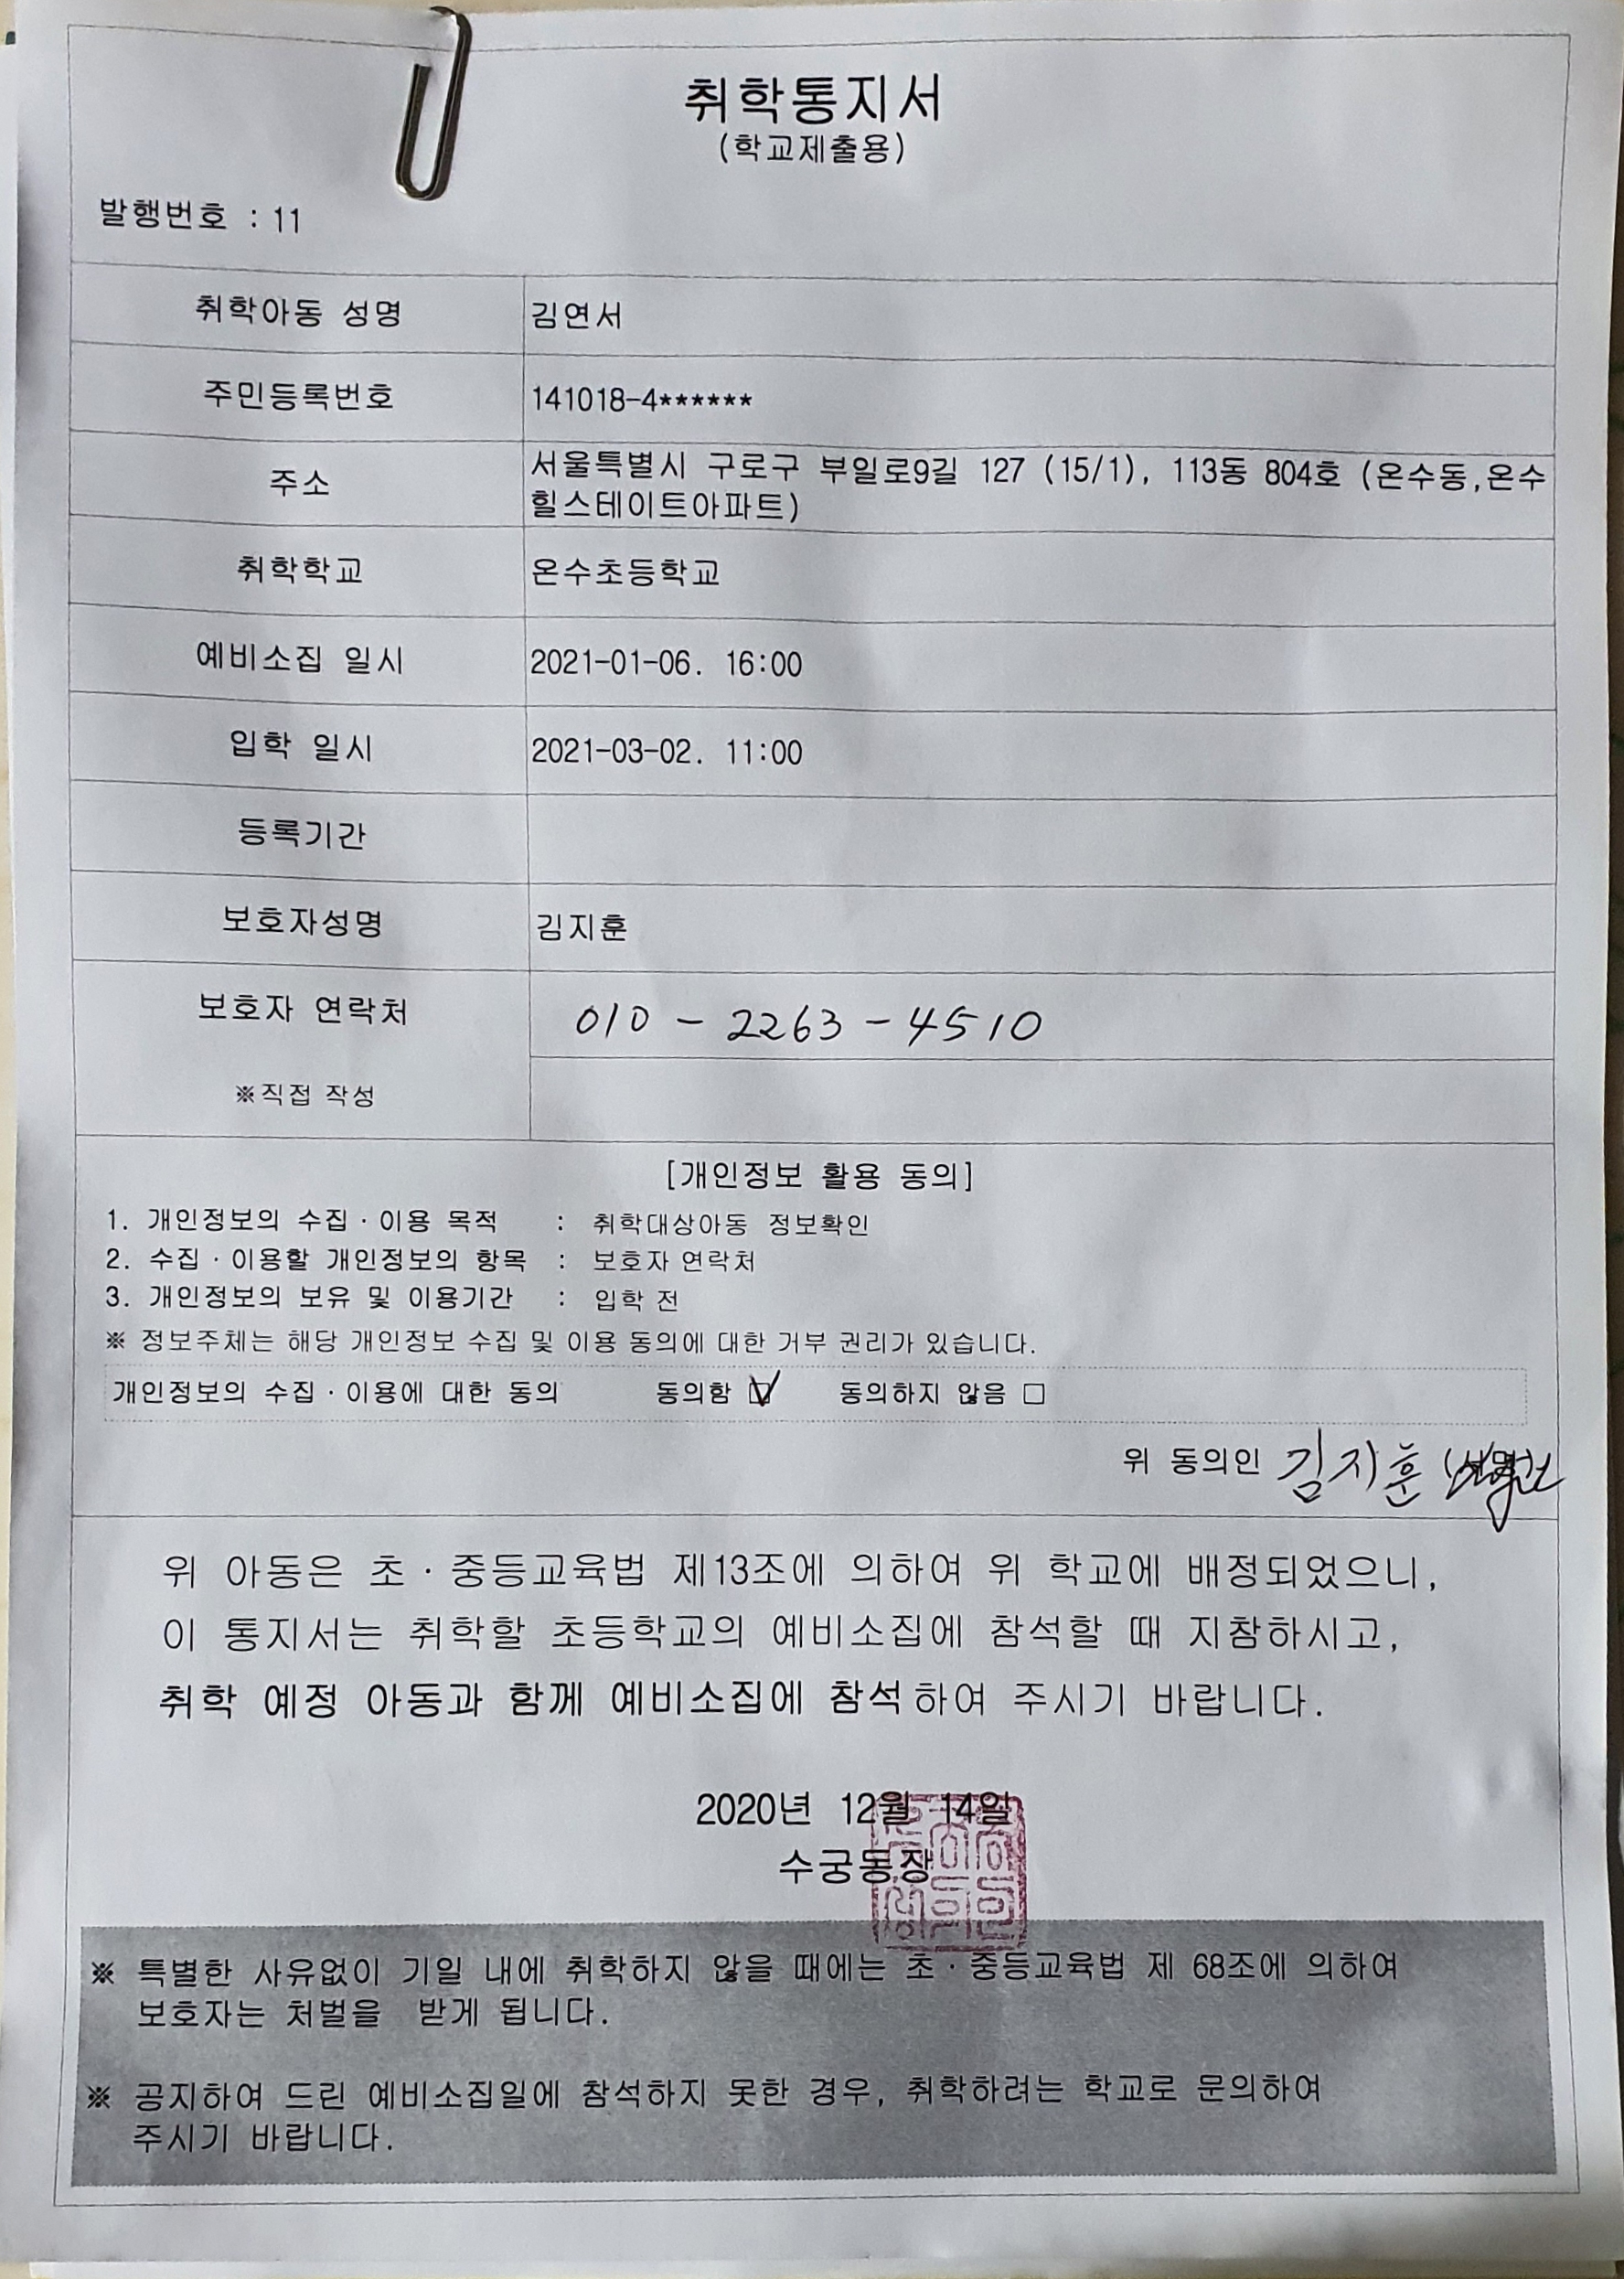 취학통지서
(학교제출용)
발행번호 : 11
취학아동 성명 김연서
주민등록번호 141018-4******
주소 서울특별시 구로구 부일로9길 127 (15/1), 113동 804호 (온수동,온수
힐스테이트아파트)
취학학교 온수초등학교
예비소집 일시 2021-01-06. 16:00
입학 일시 2021-03-02. 11:00
등록기간
보호자성명 김지훈
보호자 연락처 010 - 2263 - 4510
※직접 작성
[개인정보 활용 동의]
1. 개인정보의 수집·이용 목적 : 취학대상아동 정보확인
2. 수집·이용할 개인정보의 항목 : 보호자 연락처
3. 개인정보의 보유 및 이용기간 : 입학 전
※ 정보주체는 해당 개인정보 수집 및 이용 동의에 대한 거부 권리가 있습니다.
개인정보의 수집·이용에 대한 동의 동의함 ☑ 동의하지 않음 □
위 동의인 김지훈
위 아동은 초·중등교육법 제13조에 의하여 위 학교에 배정되었으니,
이 통지서는 취학할 초등학교의 예비소집에 참석할 때 지참하시고,
취학 예정 아동과 함께 예비소집에 참석하여 주시기 바랍니다.
2020년 12월 14일
수궁동장
※ 특별한 사유없이 기일 내에 취학하지 않을 때에는 초·중등교육법 제 68조에 의하여
보호자는 처벌을 받게 됩니다.
※ 공지하여 드린 예비소집일에 참석하지 못한 경우, 취학하려는 학교로 문의하여
주시기 바랍니다.